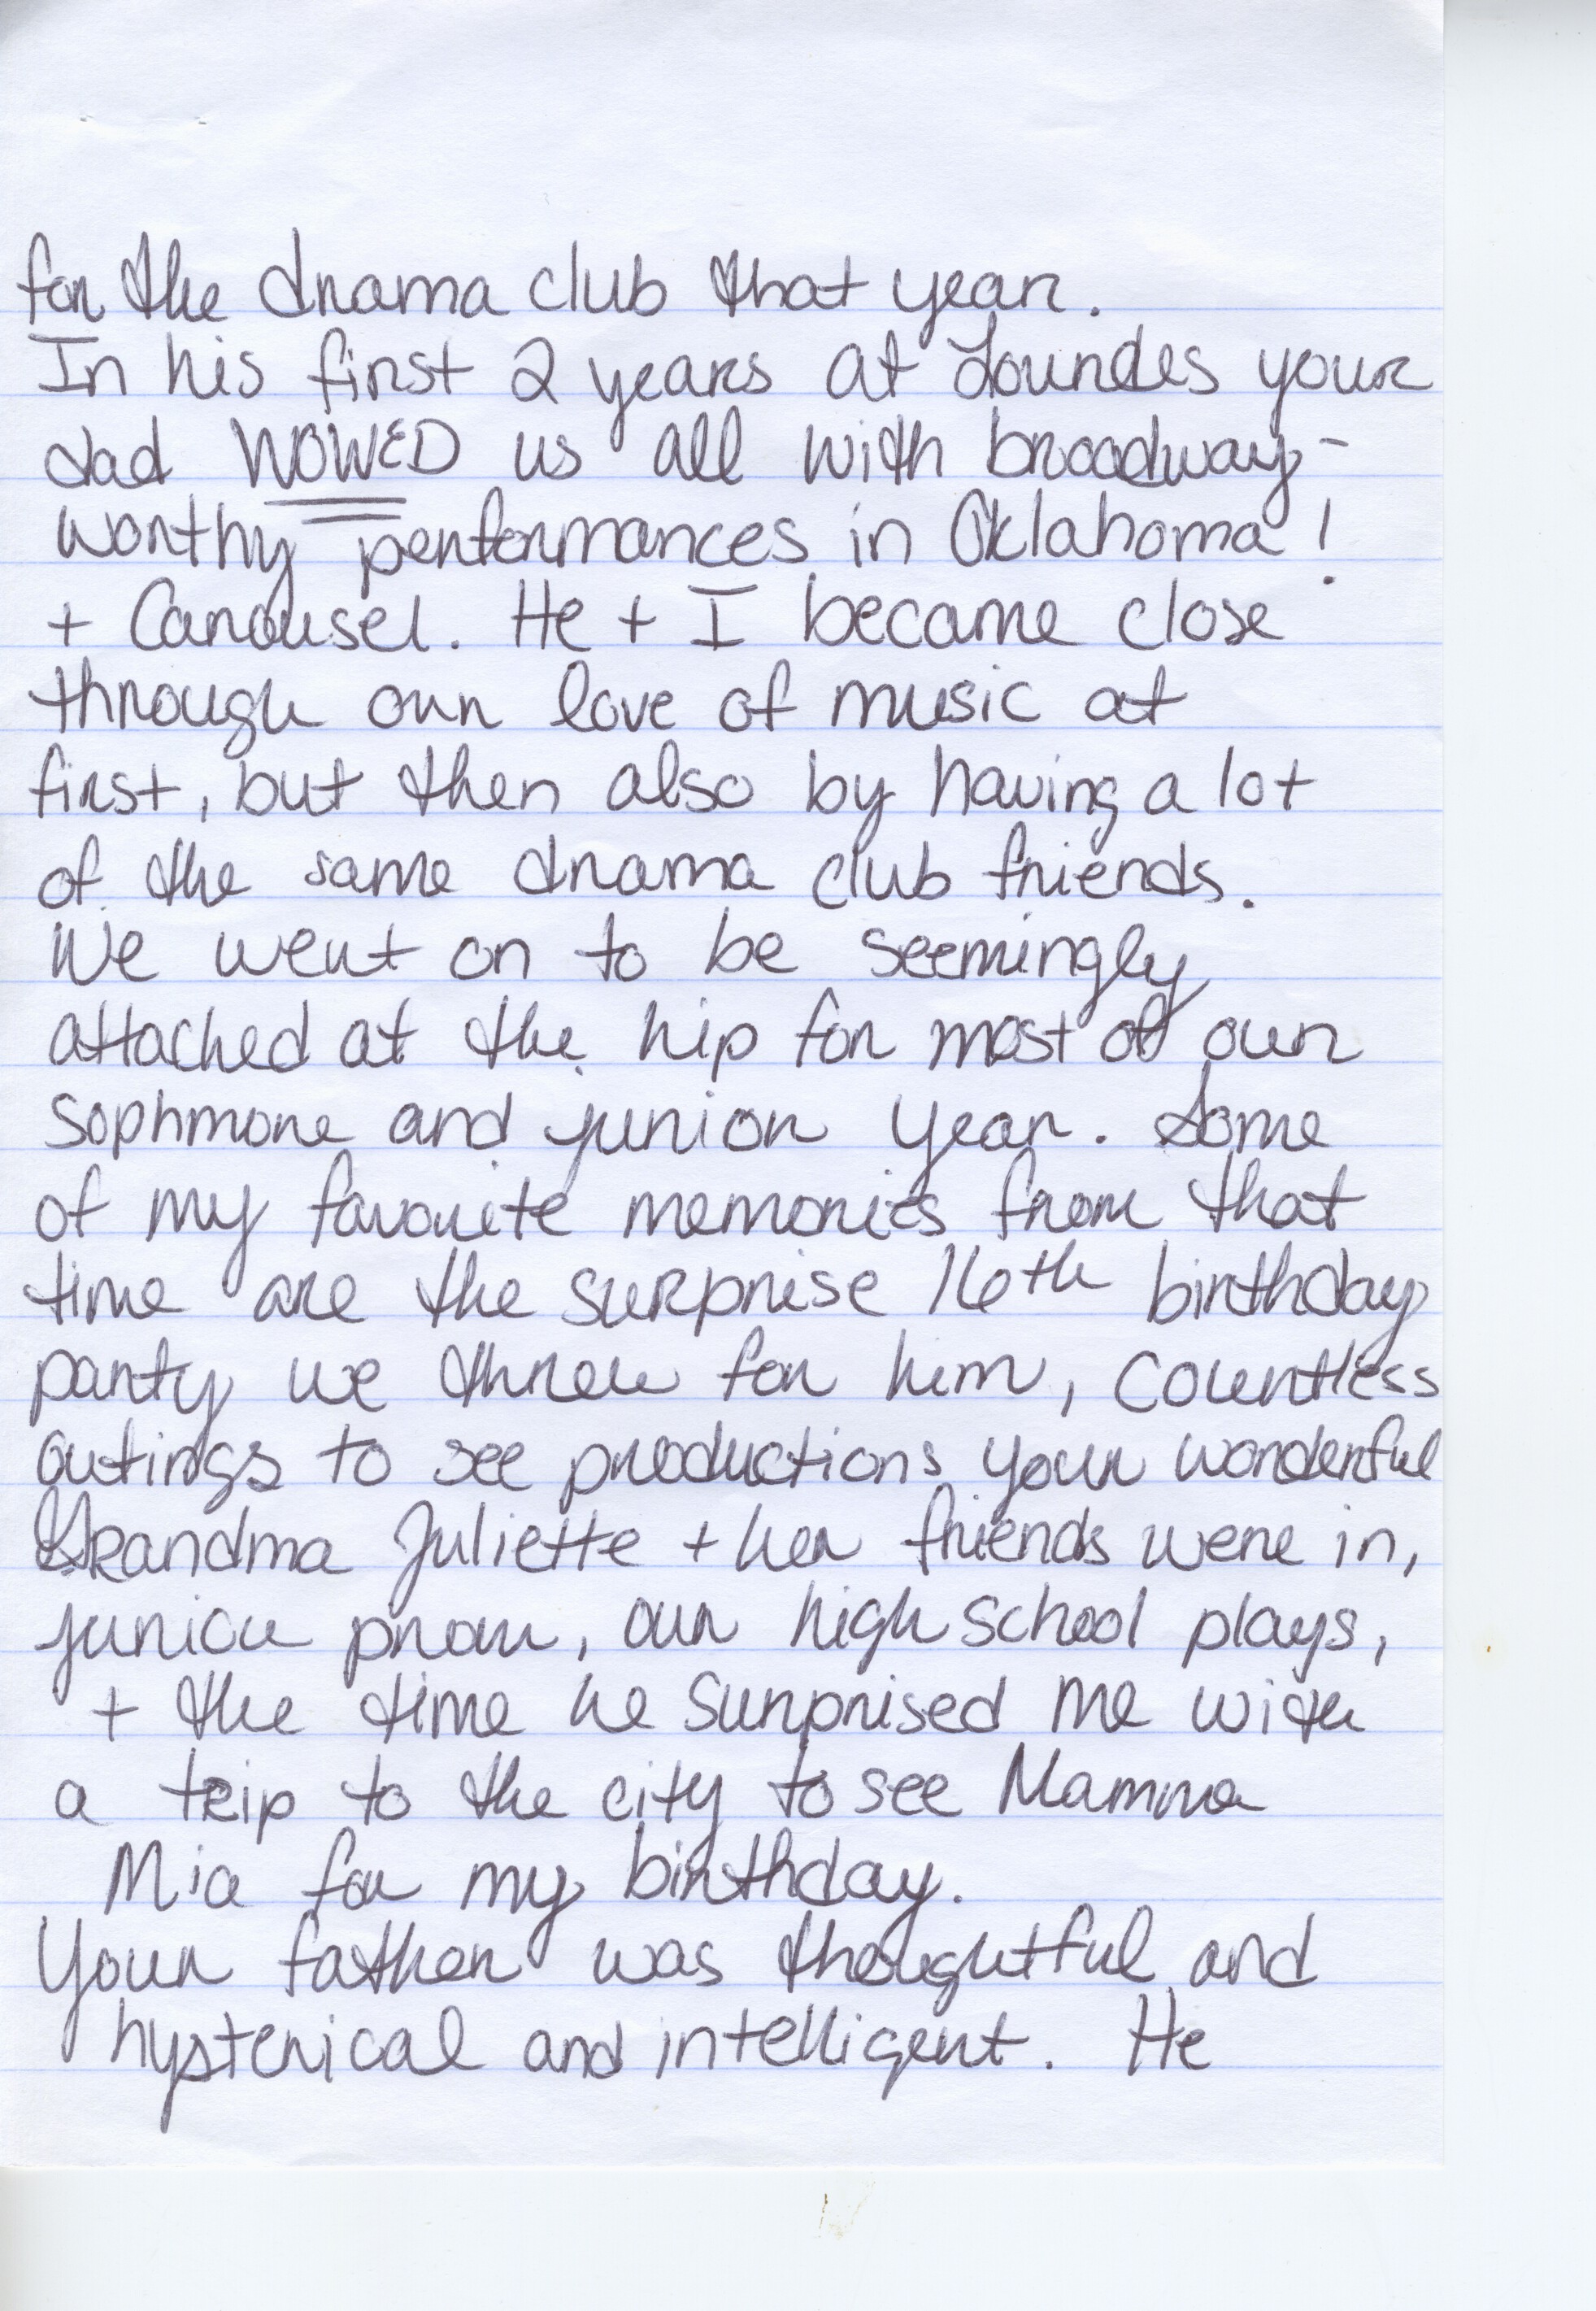 for the drama club that year.
In his first 2 years at Lourdes your
dad WOWED us all with broadway-
worthy performances in Oklahoma!
+ Carousel. He + I became close
through our love of music at
first, but then also by having a lot
of the same drama club friends.
We went on to be seemingly
attached at the hip for most of our
sophmore and junior year. Some
of my favorite memories from that
time are the surprise 16th birthday
party we threw for him, countless
outings to see productions your wonderful
Grandma Juliette + her friends were in,
junior prom, our high school plays,
+ the time he surprised me with
a trip to the city to see Mamma
Mia for my birthday.
Your father was thoughtful and
hysterical and intelligent. He